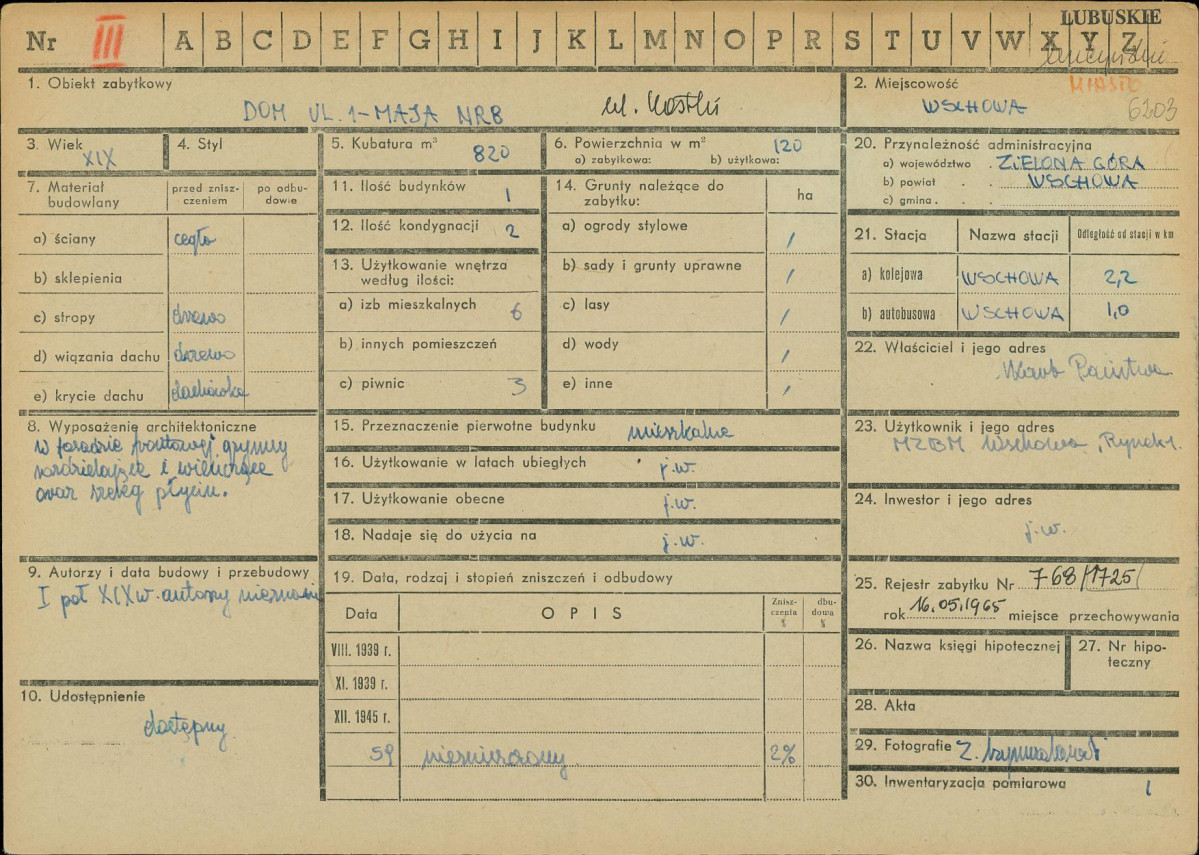 LUBUSKIE
Nr III A B C D E F G H I J K L M N O P R S T U V W X Y Z
1. Obiekt zabytkowy
DOM UL. 1-MAJA NR 8 ul. Kostki
2. Miejscowość MIASTO
WSCHOWA 6203
3. Wiek
XIX
4. Styl
5. Kubatura m³
820
6. Powierzchnia w m² 120
a) zabytkowa: b) użytkowa:
7. Materiał budowlany
przed zniszczeniem
po odbudowie
a) ściany cegła
b) sklepienia
c) stropy drzewo
d) wiązania dachu drzewo
e) krycie dachu dachówka
8. Wyposażenie architektoniczne
w fasadzie frontowej gzymsy
rozdzielające i wieńczące
oraz szereg płycin.
9. Autorzy i data budowy i przebudowy
I poł XIX w. autorzy nieznani
10. Udostępnienie
dostępny
11. Ilość budynków 1
12. Ilość kondygnacji 2
13. Użytkowanie wnętrza
według ilości:
a) izb mieszkalnych 6
b) innych pomieszczeń
c) piwnic 3
14. Grunty należące do
zabytku:
ha
a) ogrody stylowe /
b) sady i grunty uprawne /
c) lasy /
d) wody /
e) inne /
15. Przeznaczenie pierwotne budynku mieszkalne
16. Użytkowanie w latach ubiegłych j.w.
17. Użytkowanie obecne j.w.
18. Nadaje się do użycia na j.w.
19. Data, rodzaj i stopień zniszczeń i odbudowy
Data OPIS Zniszczenia % dbudowa %
VIII. 1939 r.
XI. 1939 r.
XII. 1945 r.
59 niezniszczony 2%
20. Przynależność administracyjna
a) województwo . ZIELONA GÓRA
b) powiat . . WSCHOWA
c) gmina . .
21. Stacja Nazwa stacji Odległość od stacji w km
a) kolejowa WSCHOWA 2,2
b) autobusowa WSCHOWA 1,0
22. Właściciel i jego adres
Skarb Państwa
23. Użytkownik i jego adres
MZBM Wschowa, Rynek 1.
24. Inwestor i jego adres
j.w.
25. Rejestr zabytku Nr 768/1725/
rok 16.05.1965 miejsce przechowywania
26. Nazwa księgi hipotecznej
27. Nr hipoteczny
28. Akta
29. Fotografie Z.
30. Inwentaryzacja pomiarowa 1